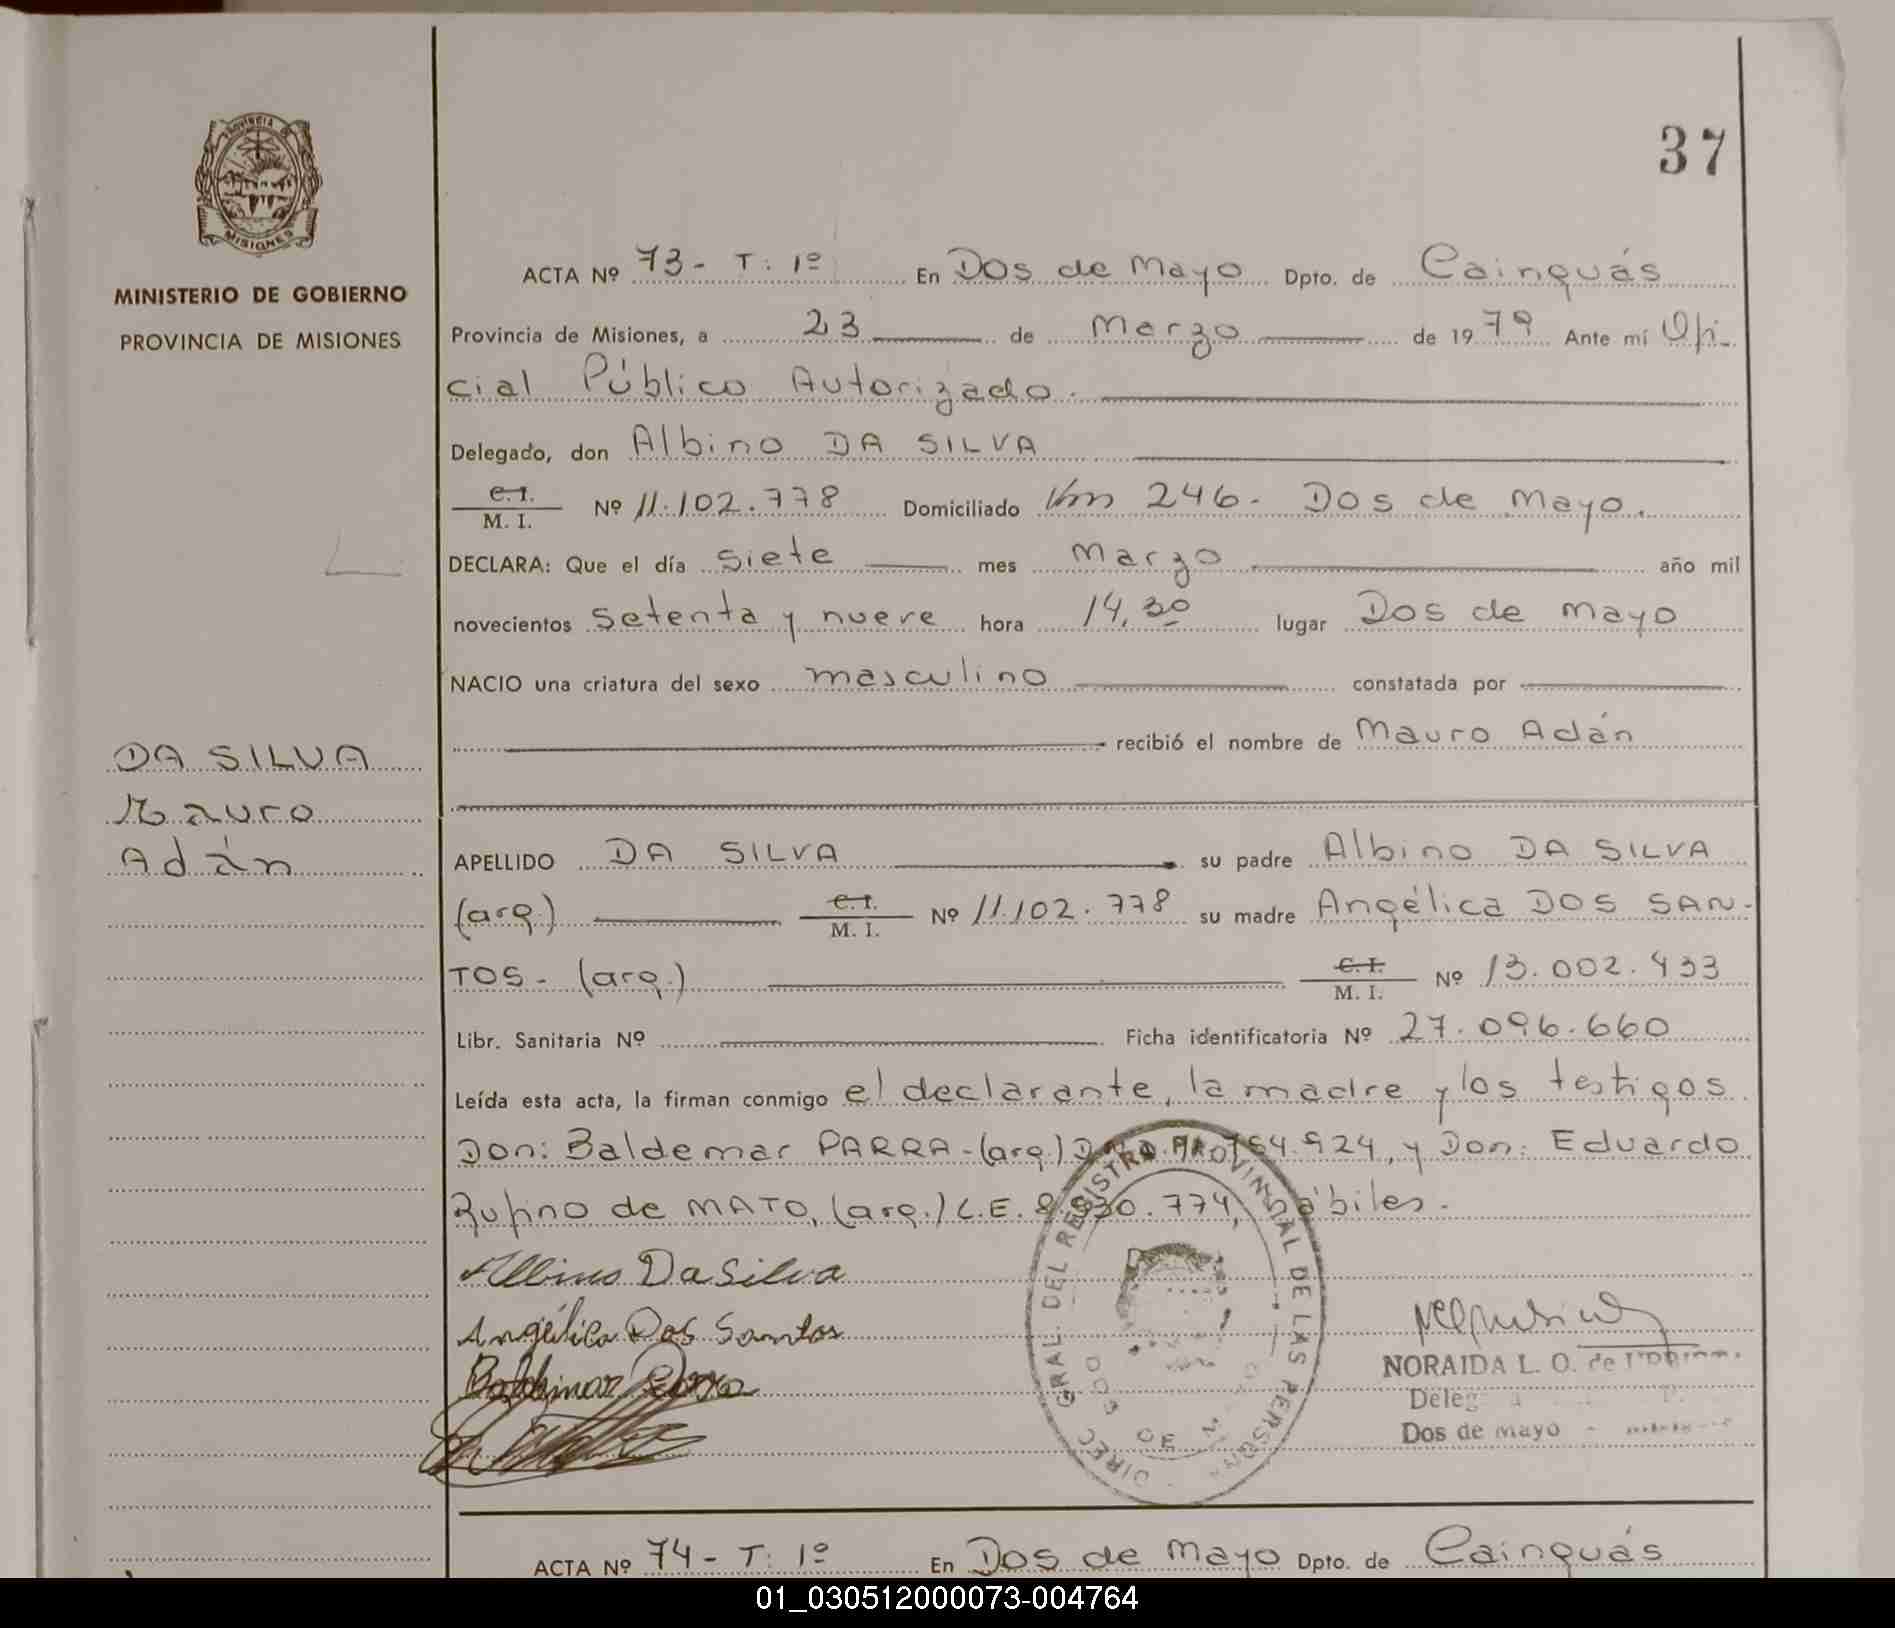 37
PROVINCIA DE
MISIONES
MINISTERIO DE GOBIERNO
PROVINCIA DE MISIONES
ACTA Nº 73 - T: 1º En Dos de Mayo Dpto. de Cainguás
Provincia de Misiones, a 23 de Marzo de 1979 Ante mí Ofi-
cial Público Autorizado.
Delegado, don Albino DA SILVA
C.I.
M. I. Nº 11.102.778 Domiciliado Km 246 - Dos de Mayo.
DECLARA: Que el día siete mes Marzo año mil
novecientos setenta y nueve hora 14,30 lugar Dos de Mayo
NACIO una criatura del sexo masculino constatada por
recibió el nombre de Mauro Adán
DA SILVA
Mauro
Adán
APELLIDO DA SILVA su padre Albino DA SILVA
(arg.) C.I. M. I. Nº 11.102.778 su madre Angélica DOS SAN-
TOS - (arg.) C.I. M. I. Nº 13.002.433
Libr. Sanitaria Nº Ficha identificatoria Nº 27.096.660
Leída esta acta, la firman conmigo el declarante, la madre y los testigos
Don: Baldemar PARRA - (arg.) 924, y Don: Eduardo
Rufino de MATO, (arg.) L.E. 774, hábiles.
Albino Da Silva
Angélica Dos Santos
Baldemar Parra
DIREC. GRAL. DEL REGISTRO PROVINCIAL DE LAS PERSONAS
NORAIDA L. O. de
Dos de mayo -
ACTA Nº 74 - T: 1º En Dos de Mayo Dpto. de Cainguás
01_030512000073-004764